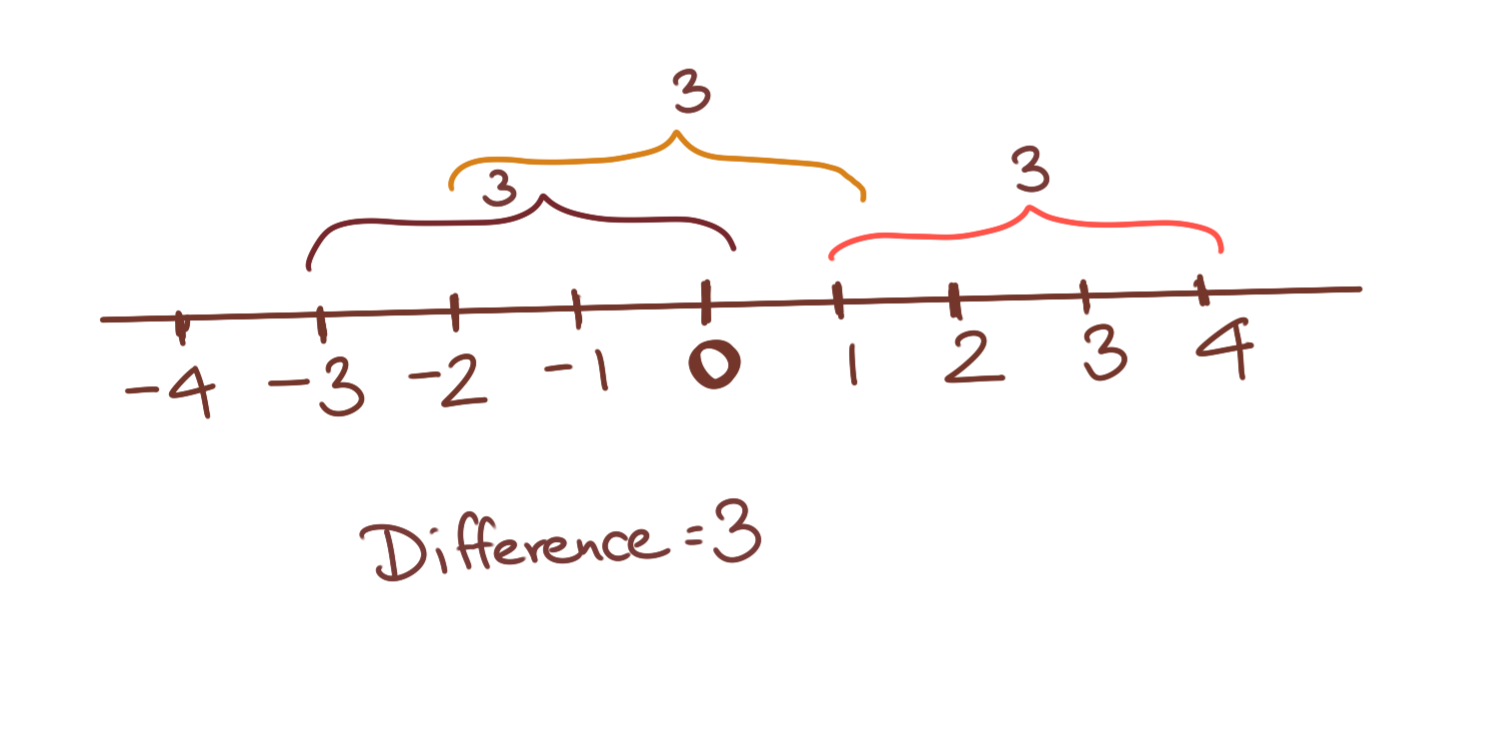 3
3
3
-4 -3 -2 -1 0 1 2 3 4
Difference = 3